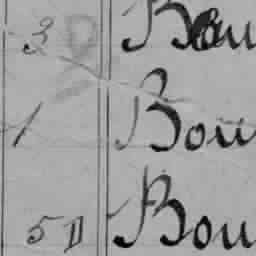 3 Bou
1 Bou
5 D Bou